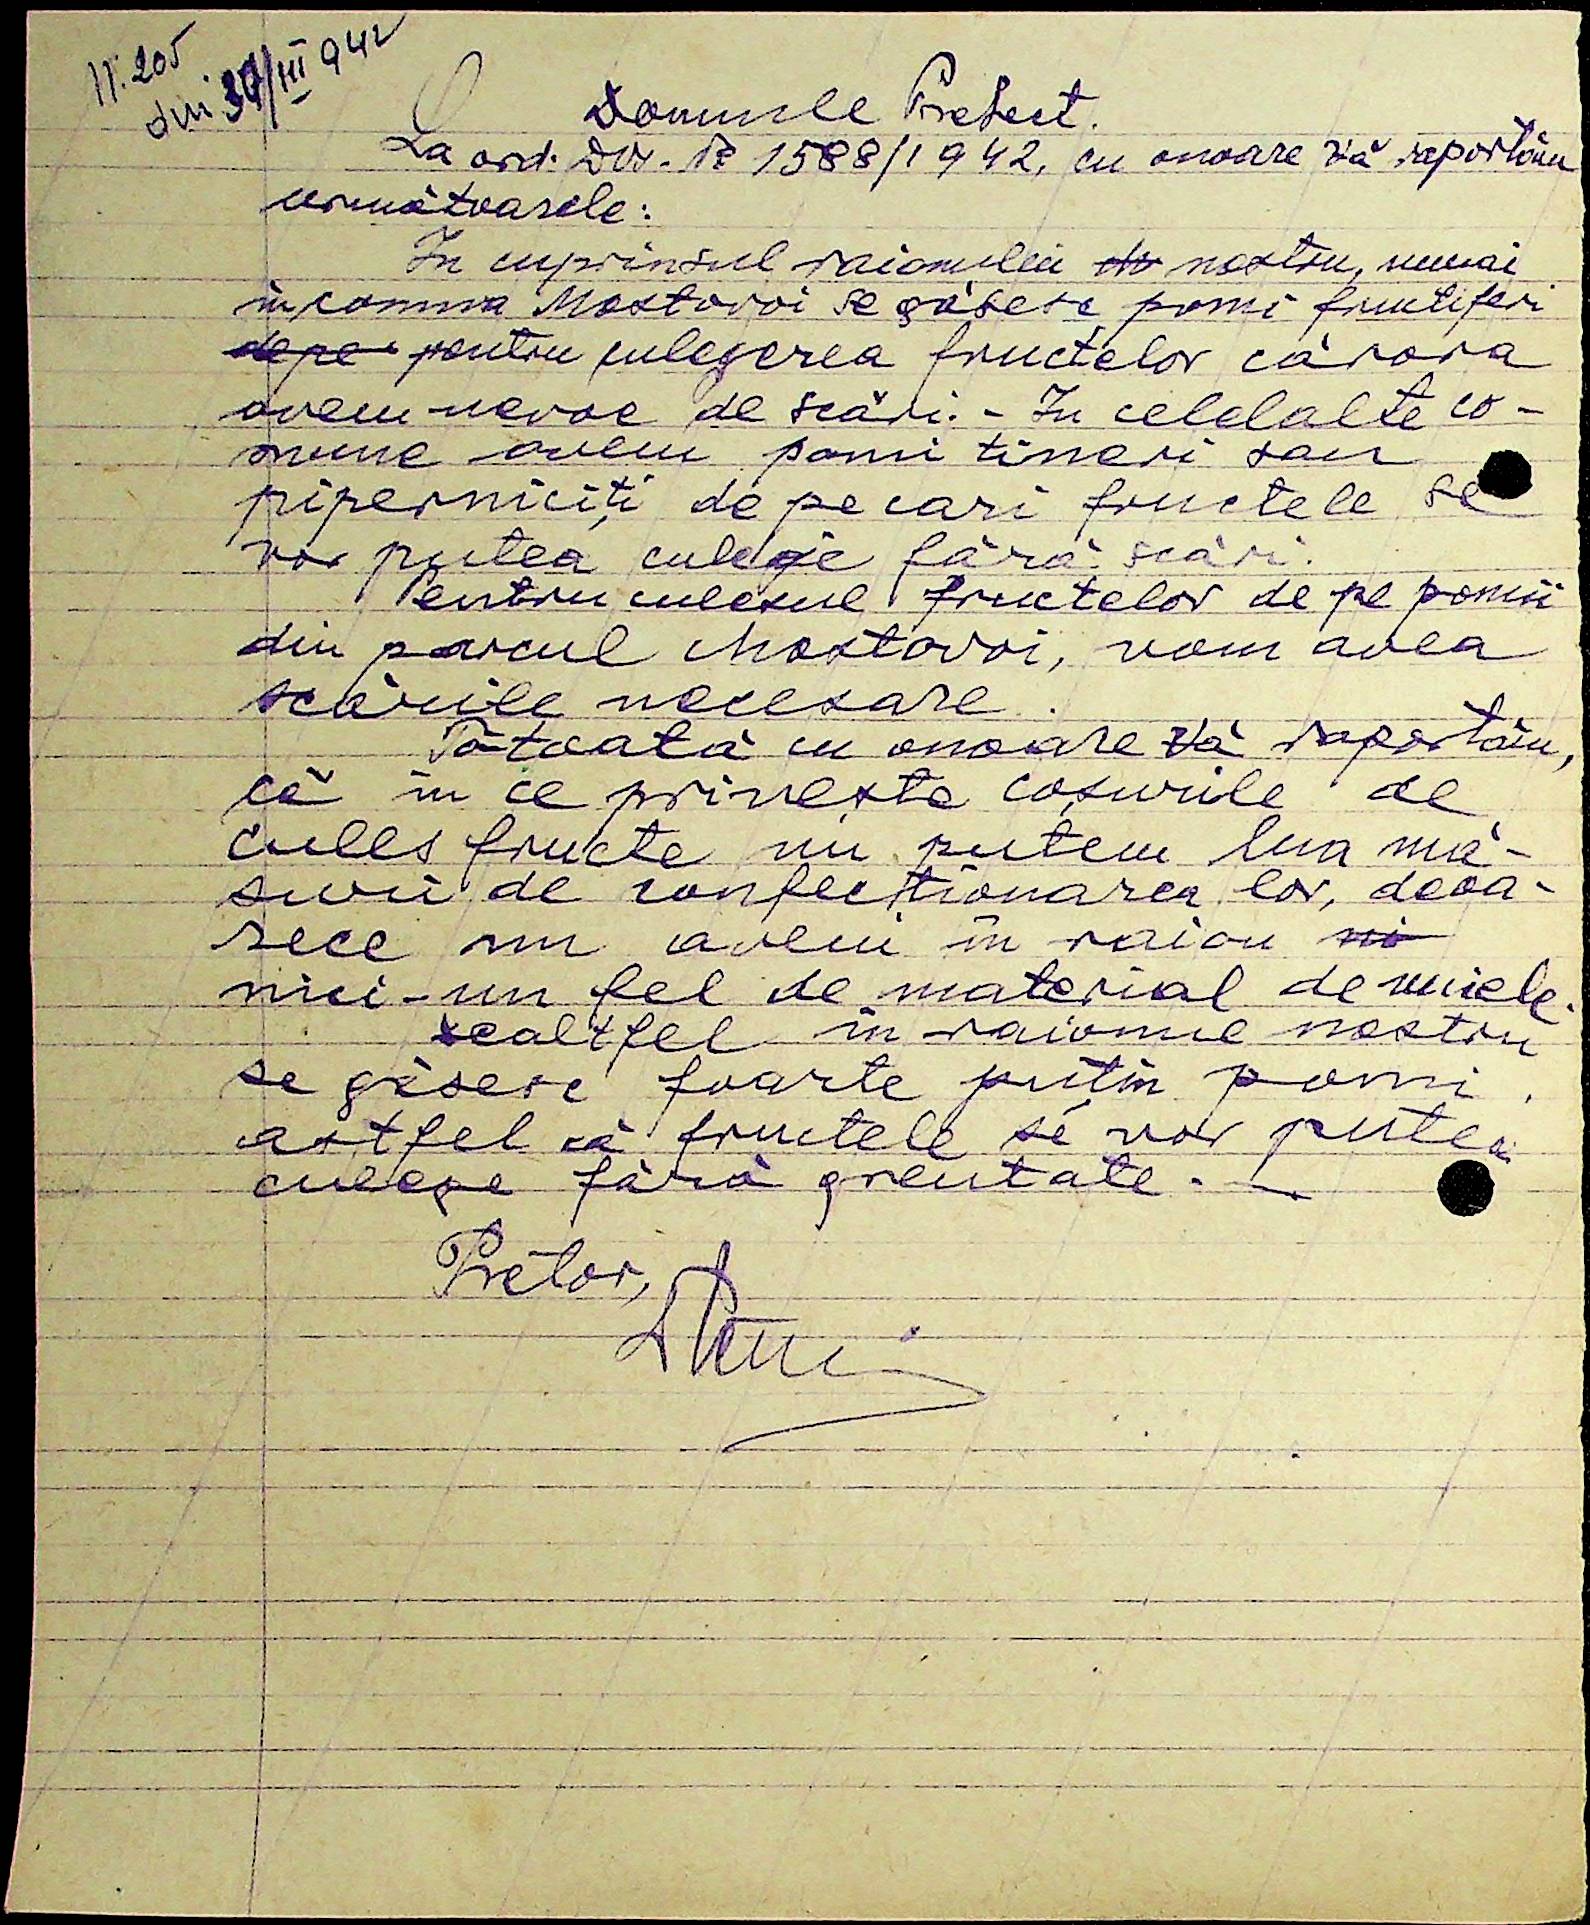 N. 205
din 30/III 942
Domnule Prefect.
La ord. Dvs. № 1588/1942, cu onoare Vă raportăm
următoarele:
In cuprinsul raionului de nostru, numai
în comuna Mostovoi se găsesc pomi fructiferi
depe pentru culegerea fructelor cărora
avem nevoe de scări. - In celelalte co-
mune avem pomi tineri sau
piperniciți de pe cari fructele se
vor putea culege fără scări.
Pentru culesul fructelor de pe pomii
din parcul Mostovoi, vom avea
scările necesare.
Tătoată cu onoare Vă raportăm,
că în ce privește coșurile de
cules fructe nu putem lua mă-
suri de confecționarea lor, deoa-
rece nu avem în raion ni
nici-un fel de material de nuiele.
Dealtfel în raionul nostru
se găsesc foarte puțin pomi,
astfel că fructele se vor putea
culege fără greutate. -
Pretor,